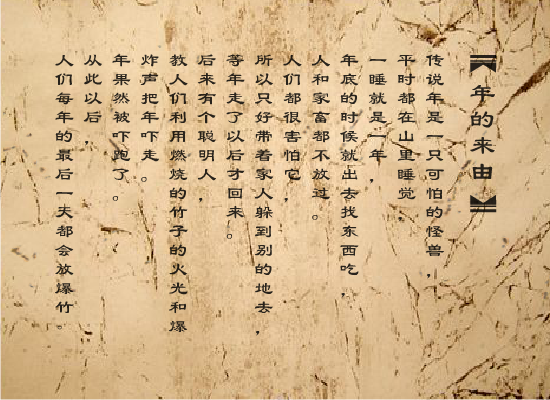 【年的来由】
传说年是一只可怕的怪兽，
平时都在山里睡觉，
一睡就是一年，
年底的时候就出去找东西吃，
人和家富都不放过。
人们都很害怕它，
所以只好带着家人躲到别的地去，
等年走了以后才回来。
后来有个聪明人，
教人们利用燃烧的竹子的火光和爆
炸声把年吓走。
年果然被吓跑了。
从此以后
人们每年的最后一天都会放爆竹。